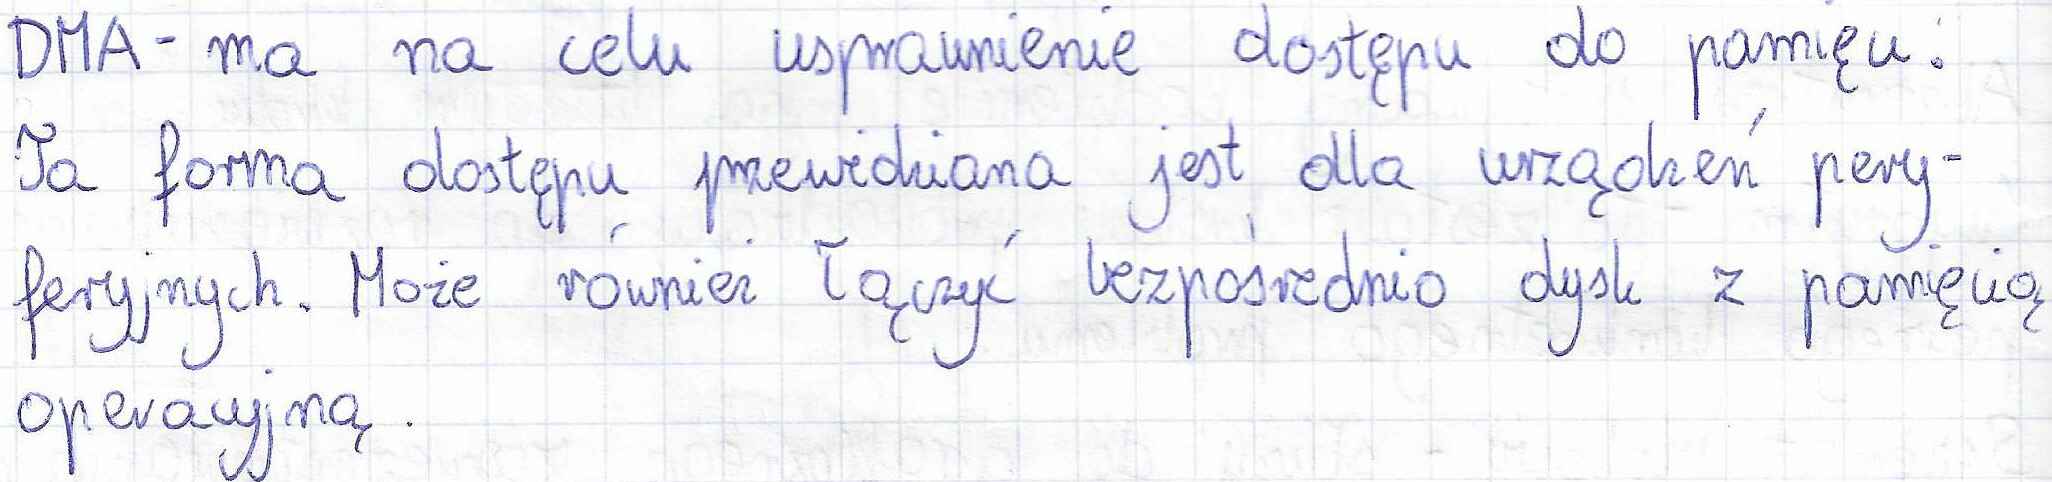 DMA - ma na celu usprawnienie dostępu do pamięci.
Ta forma dostępu przewidziana jest dla urządzeń pery-
feryjnych. Może również łączyć bezpośrednio dysk z pamięcią
operacyjną.